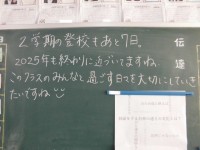 2学期の登校もあと7日。
2025年も終わりに近づいてますね。
このクラスのみんなと過ごす日々を大切にしていき
たいですね
伝
達